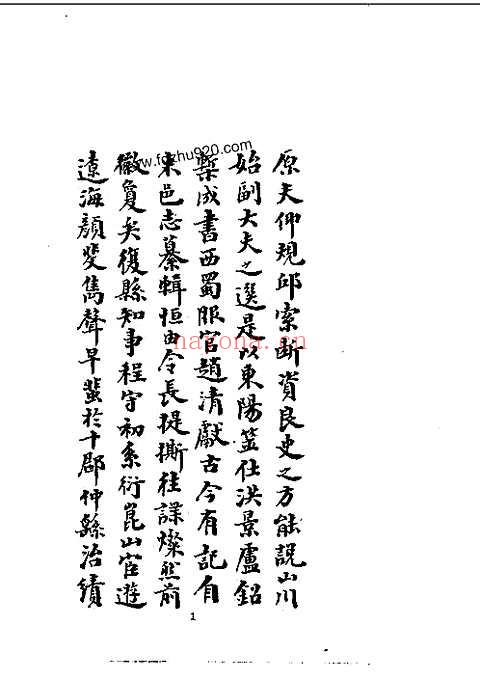 原夫仰規邱索斷資良史之方能說山川
始副大夫之選是以東陽筮仕洪景盧鉛
槧成書西蜀服官趙清獻古今有記自
來邑志纂輯恒由令長提撕往諜燦然前
徽夐矣復縣知事程守初系衍崑山宦遊
遼海顏斐雋聲早蜚於十郡仲繇治績
1
www.fozhu920.com
nayona.cn